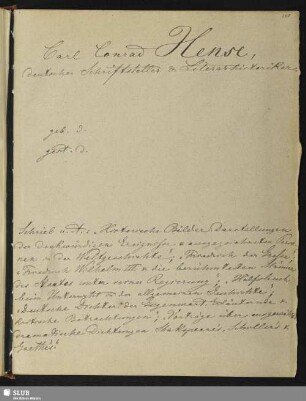 Carl Conrad Hense,
deutscher Schriftsteller & Literarhistoriker.
geb. d.
gest. d.
Schrieb u. A.: Historische Bilder, Darstellungen
der denkwürdigsten Ereignisse & ausgezeichneten Personen
in der Weltgeschichte; Friedrich der Große;
Friedrich Wilhelm III & die berühmtesten Männer
des Staates unter seiner Regierung; Hülfsbuch
beim Unterricht in der allgemeinen Geschichte;
deutsche Dichter der Gegenwart. Erläuternde &
kritische Betrachtungen; Vorträge über ausgewählte
dramatische Dichtungen Shakspeare's, Schiller's &
Goethe's.
SLUB